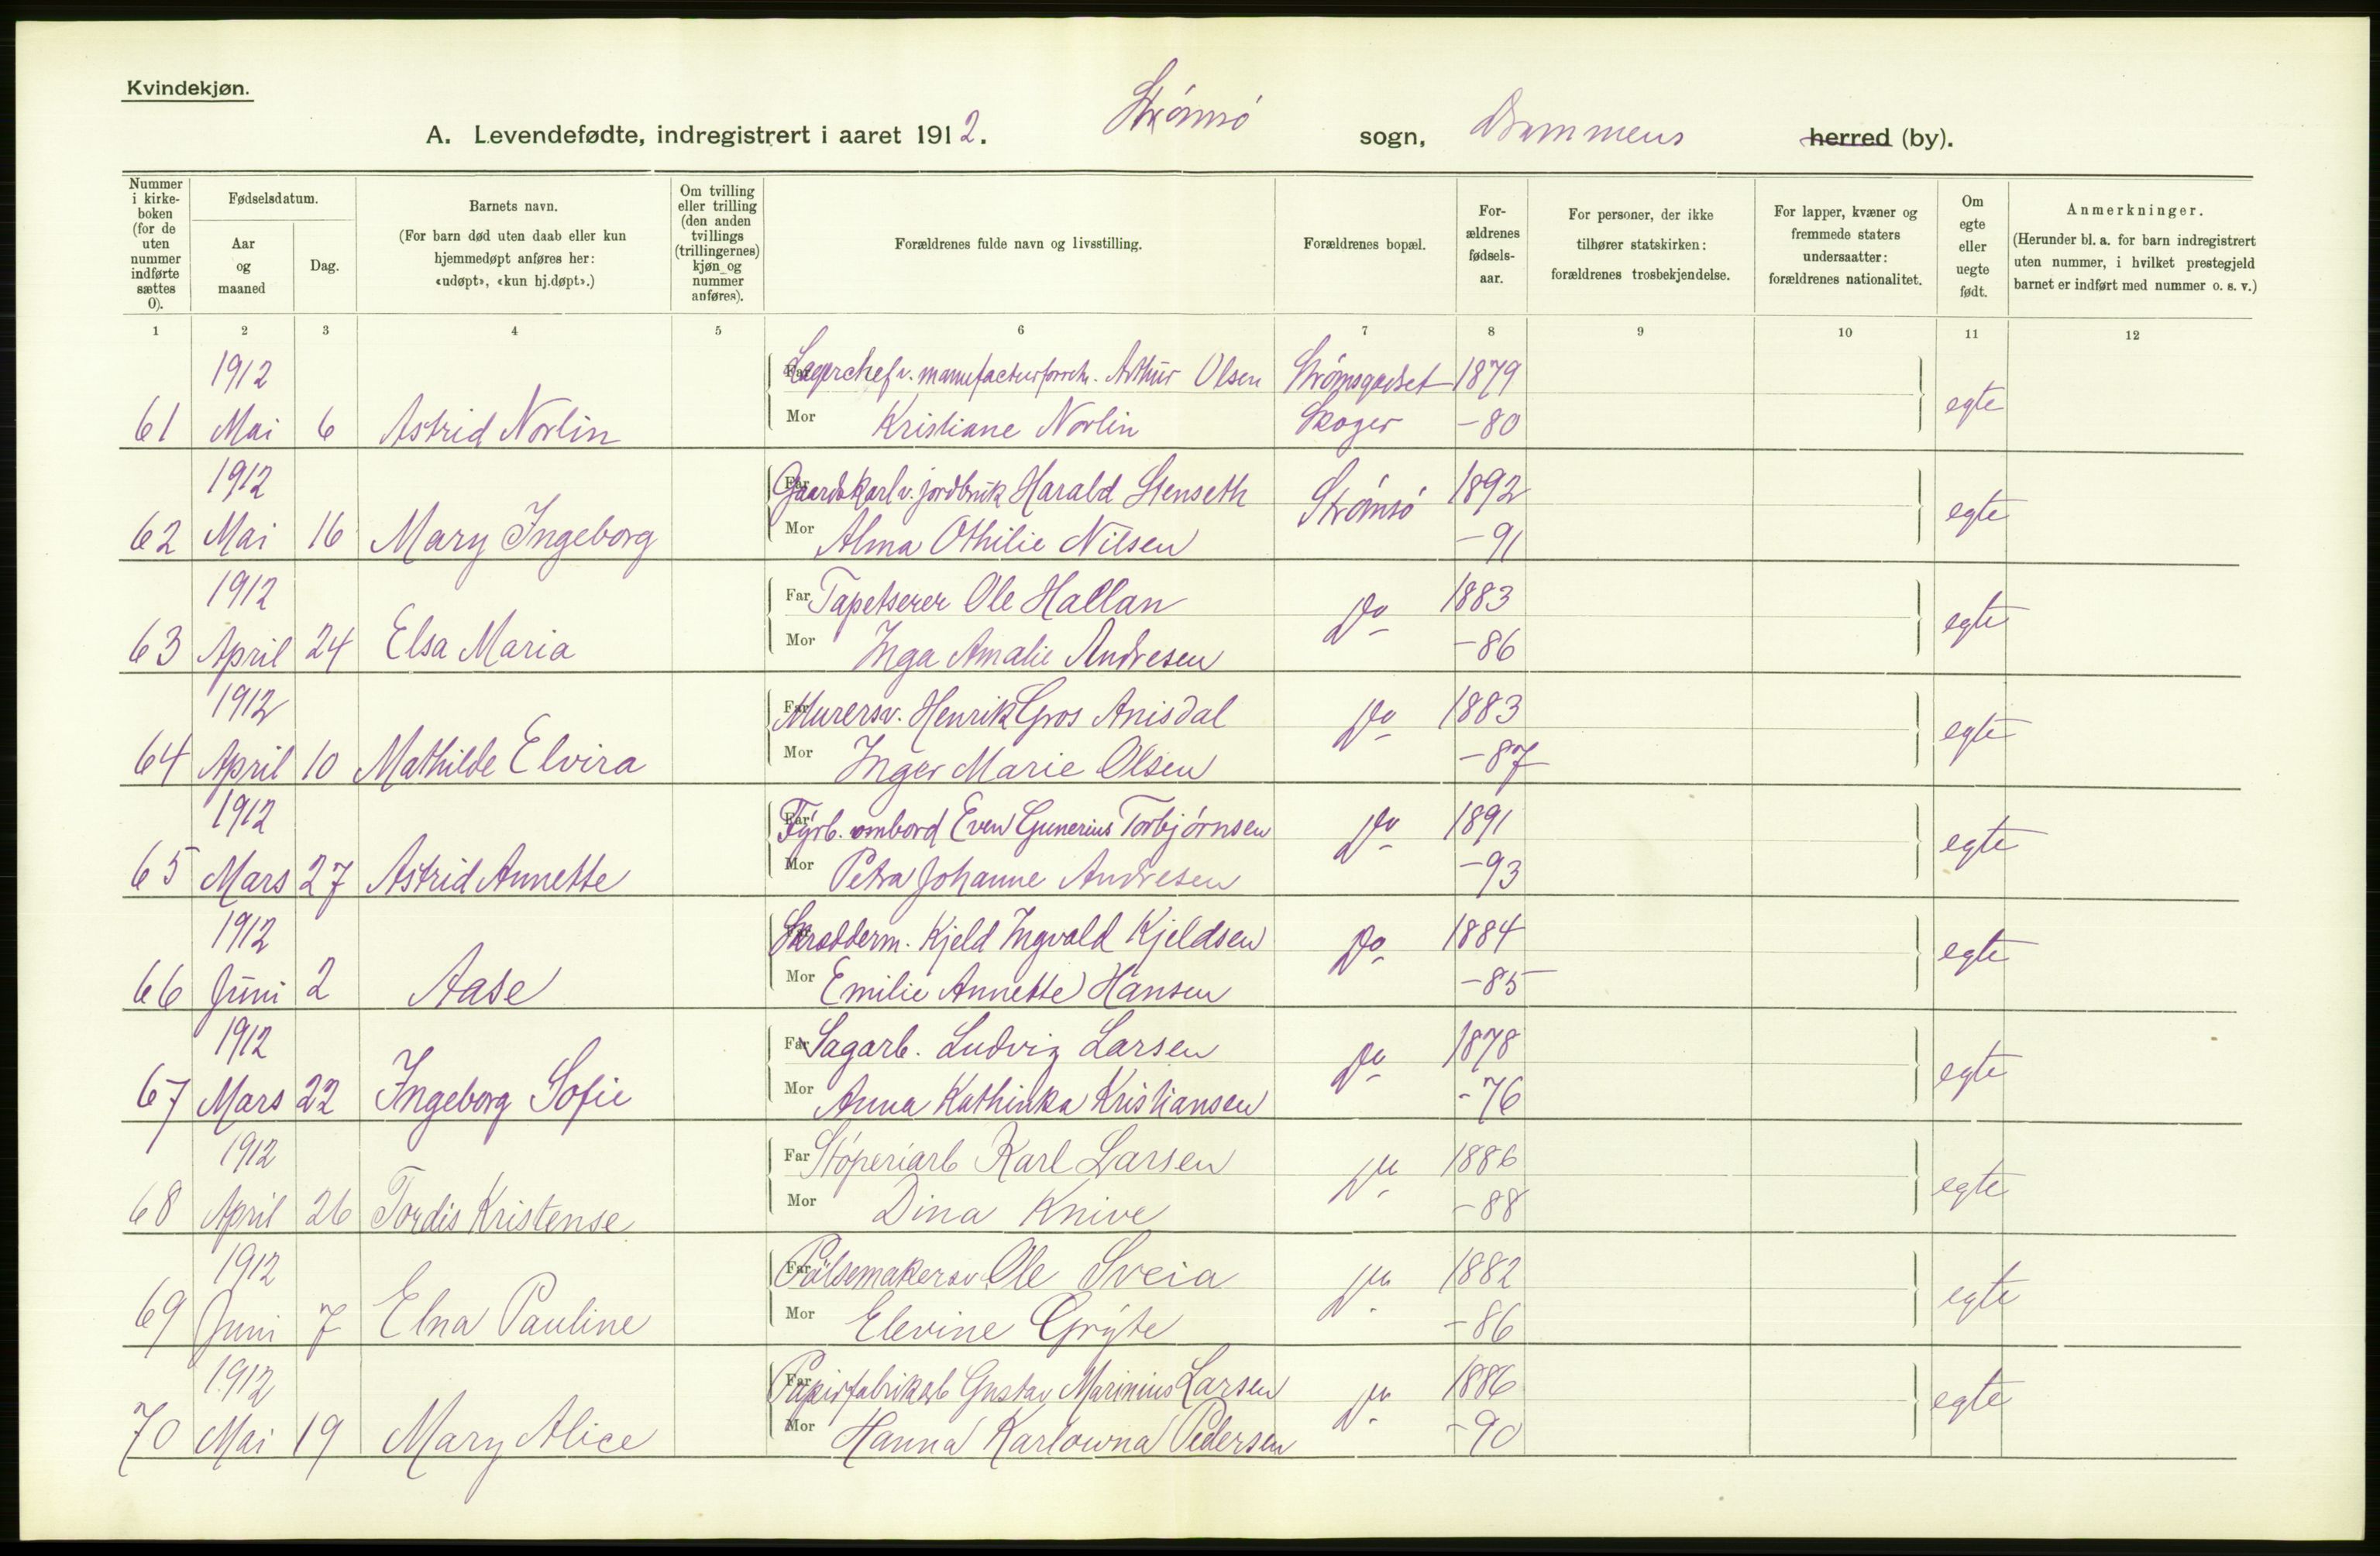 Kvindekjøn.
A. Levendefødte, indregistrert i aaret 1912. Strømsø sogn, Drammens herred (by).
Nummer i kirke-boken (for de uten nummer indførte sættes 0).
Fødselsdatum.
Aar og maaned
Dag.
Barnets navn.
(For barn død uten daab eller kun hjemmedøpt anføres her: «udøpt», «kun hj.døpt».)
Om tvilling eller trilling (den anden tvillings (trillingernes) kjøn og nummer anføres).
Forældrenes fulde navn og livsstilling.
Forældrenes bopæl.
For-ældrenes fødsels-aar.
For personer, der ikke tilhører statskirken: forældrenes trosbekjendelse.
For lapper, kvæner og fremmede staters undersaatter: forældrenes nationalitet.
Om egte eller uegte født.
Anmerkninger.
(Herunder bl. a. for barn indregistrert uten nummer, i hvilket prestegjeld barnet er indført med nummer o. s. v.)
1 2 3 4 5 6 7 8 9 10 11 12
1912 Far Lagerchef v. manufacturforretn. Arthur Olsen Strømsgodset 1879
61 Mai 6 Astrid Norlin Mor Kristiane Norlin Skoger -80 egte
1912 Far Gaardskarl v. jordbruk Harald Stenseth Strømsø 1892
62 Mai 16 Mary Ingeborg Mor Alma Othilie Nilsen -91 egte
1912 Far Tapetserer Ole Hallan Do 1883
63 April 24 Elsa Maria Mor Inga Amalie Andresen -86 egte
1912 Far Murersv. Henrik Gros Anisdal Do 1883
64 April 10 Mathilde Elvira Mor Inger Marie Olsen -87 egte
1912 Far Fyrb. ombord Even Gunerius Torbjørnsen Do 1891
65 Mars 27 Astrid Annette Mor Petra Johanne Andresen -93 egte
1912 Far Skrædderm. Kjeld Ingvald Kjeldsen Do 1884
66 Juni 2 Aase Mor Emilie Annette Hansen -85 egte
1912 Far Sagarb. Ludvig Larsen Do 1878
67 Mars 22 Ingeborg Sofie Mor Anna Kathinka Kristiansen -76 egte
1912 Far Støperiarb Karl Larsen Do 1886
68 April 26 Tordis Kristense Mor Dina Knive -88 egte
1912 Far Pølsemakersv. Ole Sveia Do 1882
69 Juni 7 Elna Pauline Mor Elevine Grÿte -86 egte
1912 Far Papirfabrikarb Gustav Marinius Larsen Do 1886
70 Mai 19 Mary Alice Mor Hanna Karlowna Pedersen -90 egte